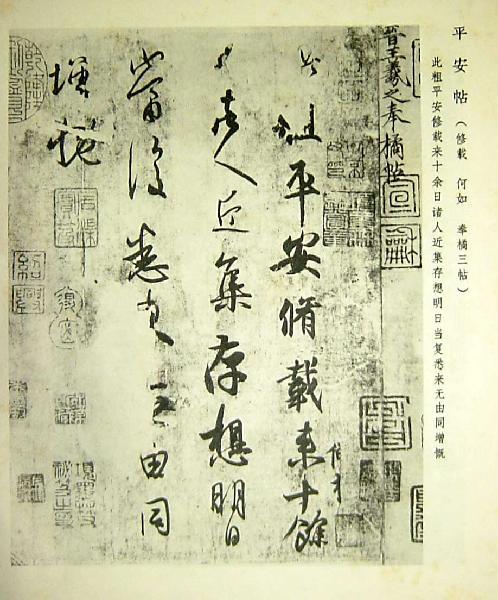 平安帖（修載 何如 奉橘三帖）
此粗平安修載来十余日诸人近集存想明日当复悉来无由同增慨
晉王羲之奉橘帖
此粗平安脩載来十餘
日諸人近集存想明日
當復悉来无由同
增慨
紹興